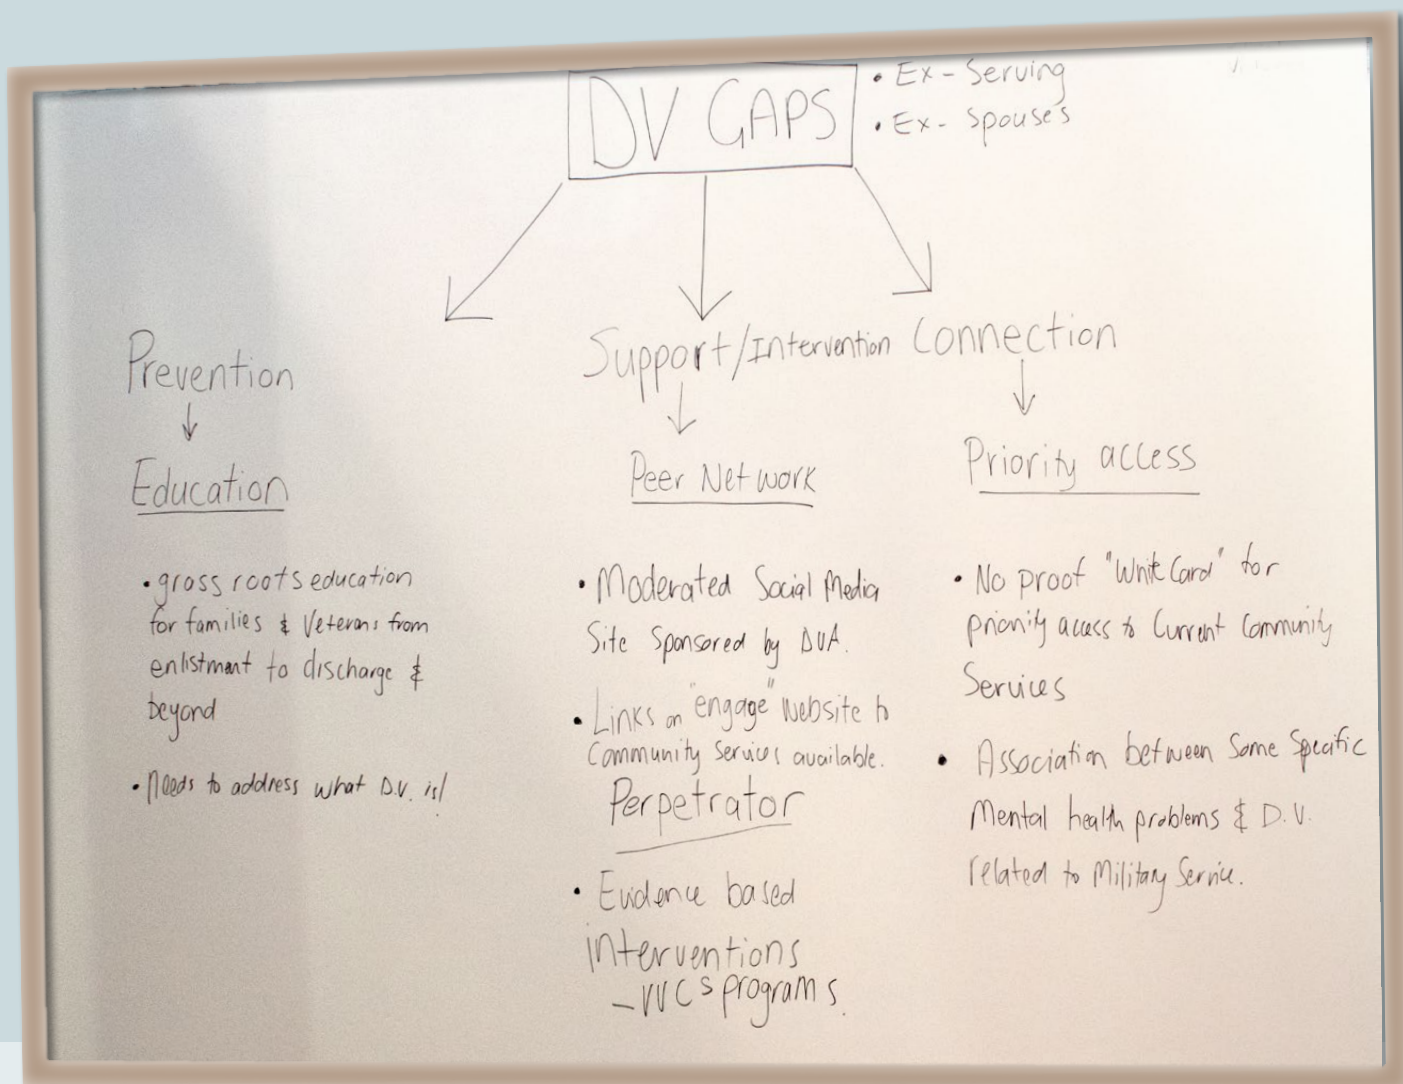 DV GAPS
• Ex-Serving
• Ex-Spouses
Prevention
Education
• grass roots education
for families & Veterans from
enlistment to discharge &
beyond
• Needs to address what D.V. is!
Support/Intervention
Peer Network
• Moderated Social Media
Site Sponsored by DVA.
• Links on "engage" website to
Community Services available.
Perpetrator
• Evidence based
interventions
- VVCS programs.
Connection
Priority access
• No proof "White Card" for
priority access to Current Community
Services
• Association between Some Specific
Mental health problems & D.V.
related to Military Service.